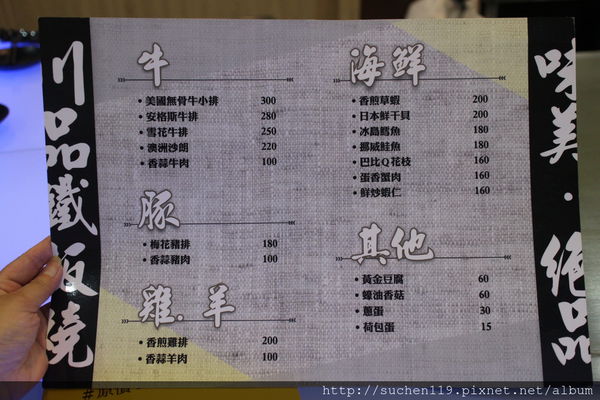 川品鐵板燒
牛
美國無骨牛小排 300
安格斯牛排 280
雪花牛排 250
澳洲沙朗 220
香蒜牛肉 100
豚
梅花豬排 180
香蒜豬肉 100
雞.羊
香煎雞排 200
香蒜羊肉 100
海鮮
香煎草蝦 200
日本鮮干貝 200
冰島鱈魚 180
挪威鮭魚 180
巴比Q花枝 160
蛋香蟹肉 160
鮮炒蝦仁 160
其他
黃金豆腐 60
蠔油香菇 60
蔥蛋 30
荷包蛋 15
味美.絕品
http://suchen119.pixnet.net/album